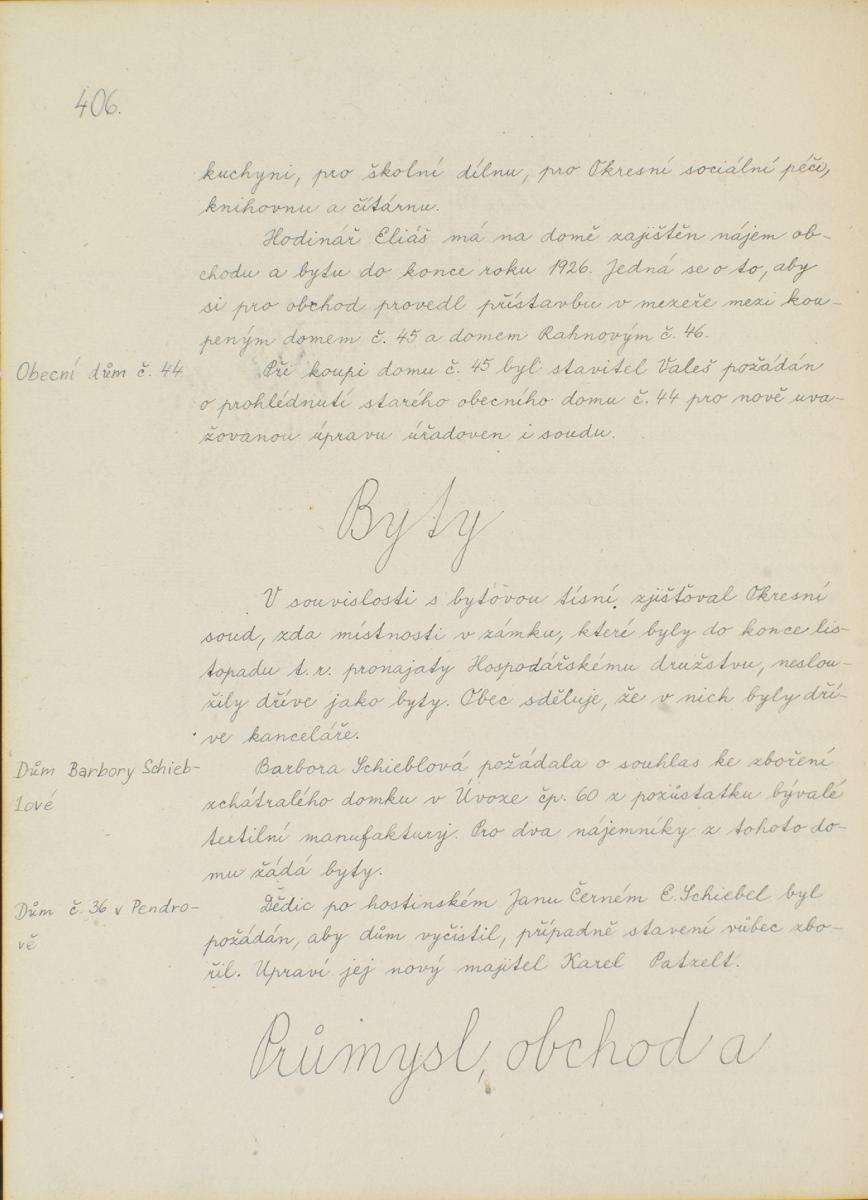 406.
kuchyni, pro školní dílnu, pro Okresní sociální péči,
knihovnu a čítárnu.
Hodinář Eliáš má na domě zajištěn nájem ob-
chodu a bytu do konce roku 1926. Jedná se o to, aby
si pro obchod provedl přístavbu v mezeře mezi kou-
peným domem č. 45 a domem Rahnovým č. 46.
Obecní dům č. 44
Při koupi domu č. 45 byl stavitel Valeš požádán
o prohlédnutí starého obecního domu č. 44 pro nově uva-
žovanou úpravu úřadoven i soudu.
Byty
V souvislosti s bytovou tísní zjišťoval Okresní
soud, zda místnosti v zámku, které byly do konce lis-
topadu t. r. pronajaty Hospodářskému družstvu, neslou-
žily dříve jako byty. Obec sděluje, že v nich byly dří-
ve kanceláře.
Dům Barbory Schieb-
lové
Barbora Schieblová požádala o souhlas ke zboření
zchátralého domku v Úvoze čp. 60 z pozůstatku bývalé
textilní manufaktury. Pro dva nájemníky z tohoto do-
mu žádá byty.
Dům č. 36 v Pendro-
vě
Dědic po hostinském Janu Černém E. Schiebel byl
požádán, aby dům vyčistil, případně stavení vůbec zbo-
řil. Upraví jej nový majitel Karel Patzelt.
Průmysl, obchod a